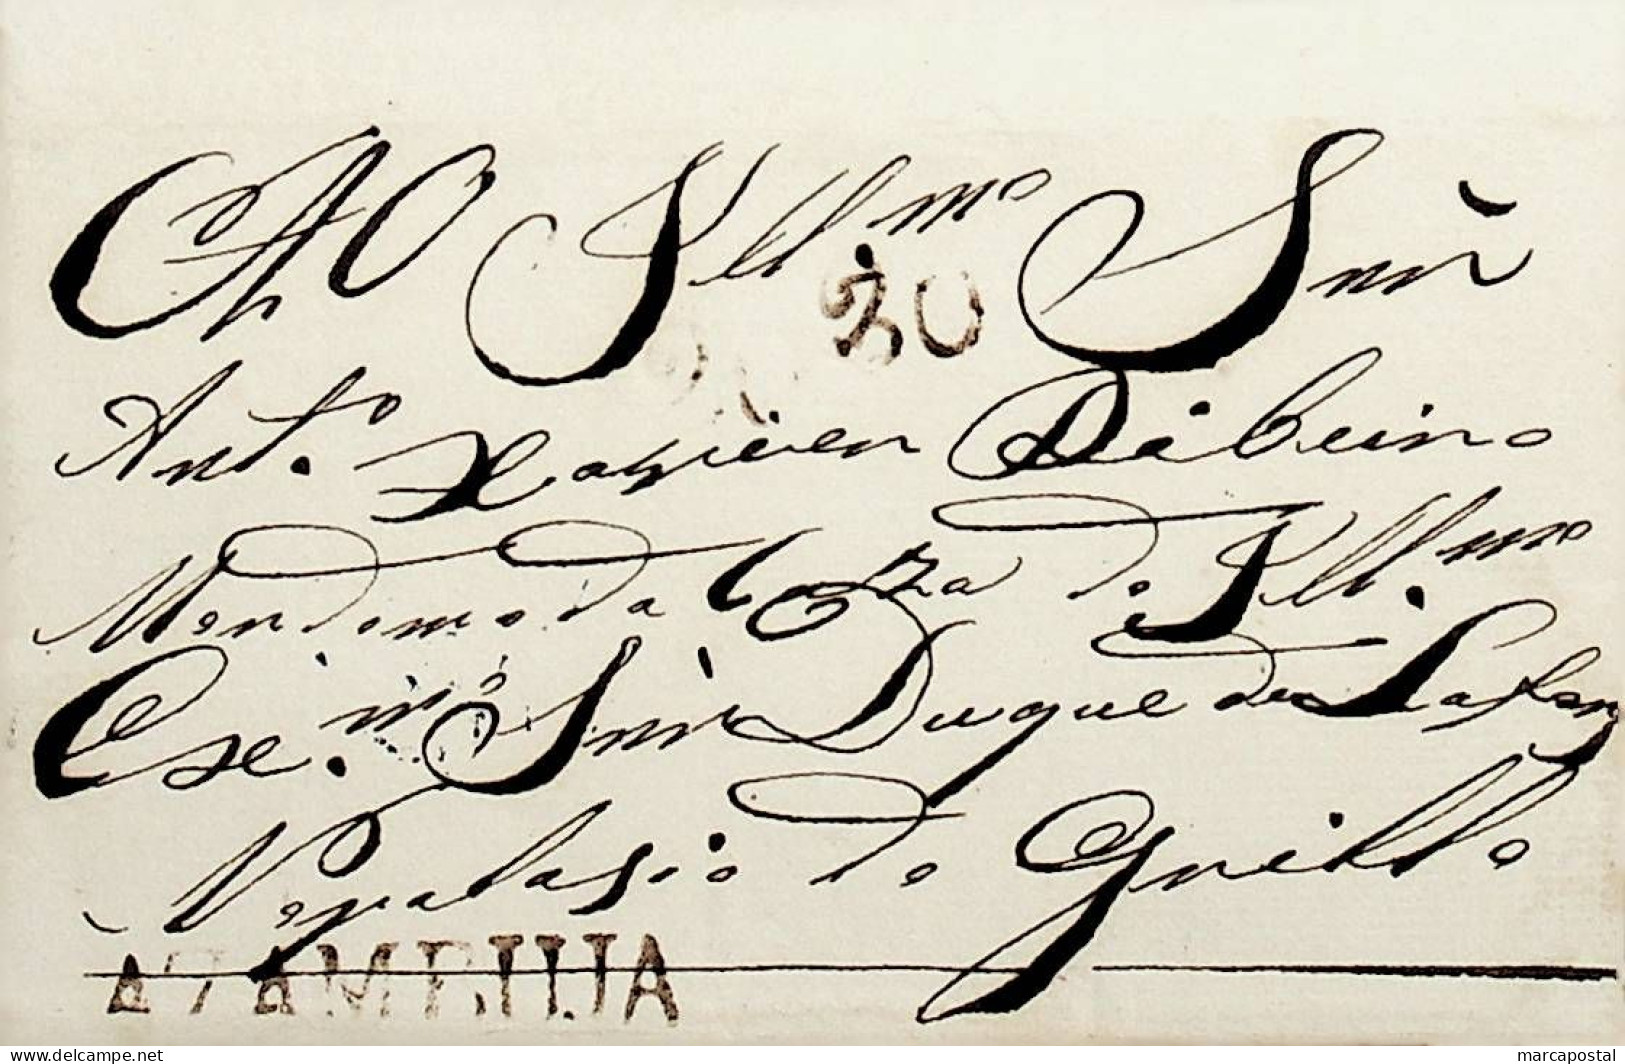 AO Illmo Snr
30
Anto Xavier Ribeiro
Mordomo da Caza do Illmo
Exmo Snr Duque de Lafoens
No palasio do Grillo
AZAMBUJA
© delcampe.net
marcapostal